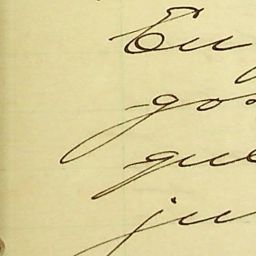 Eu
gos
que
ju